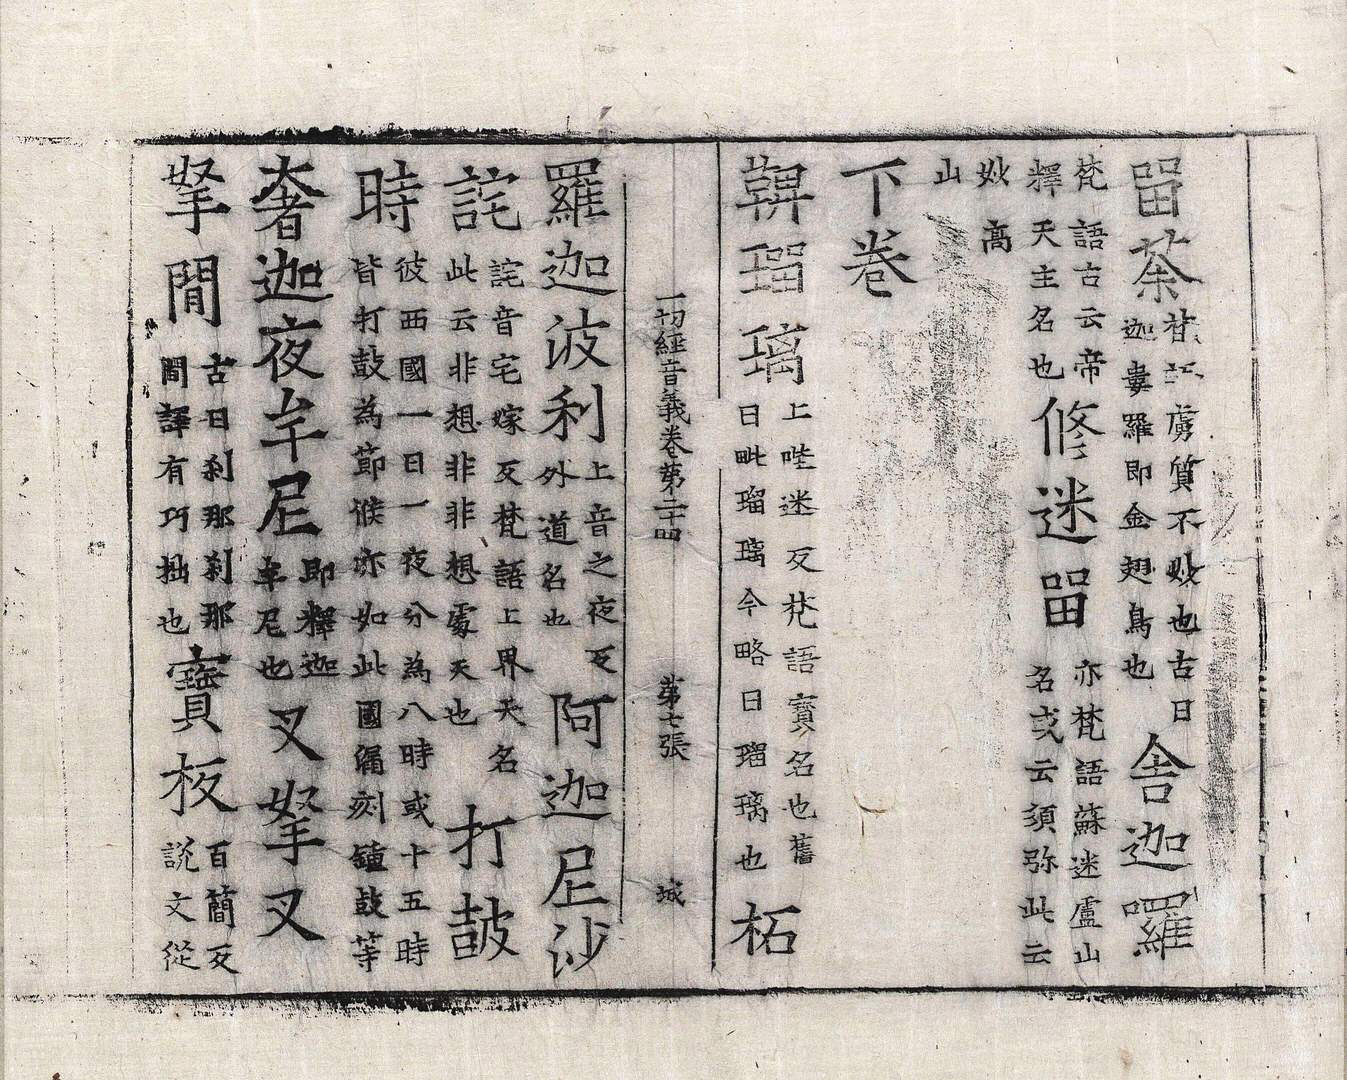 畱荼虜質不妙也古曰迦婁羅即金翅鳥也舍迦羅
梵語古云帝釋天主名也修迷畱亦梵語蘇迷盧山名或云須弥此云
妙高山
下卷
鞞瑠璃上迷反梵語寶名也舊曰毗瑠璃今略曰瑠璃也柘
一切經音義卷第二十四 第七張 城
羅迦波利上音之夜反外道名也阿迦尼沙
詫詫音宅嫁反梵語上界天名此云非想非非想處天也打皷
時彼西國一日一夜分為八時或十五時皆打鼓為節候亦如此國漏刻鐘鼓等
奢迦夜牟尼即釋迦牟尼也叉拏叉
拏閒古曰刹那刹那間譯有巧拙也寶板百簡反說文從